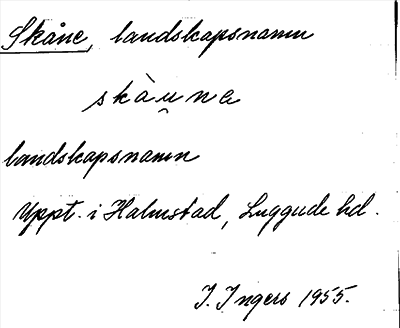 Skåne, landskapsnamn
skàu̯na
landskapsnamn
Uppt. i Halmstad, Luggude hd.
I. Ingers 1955.